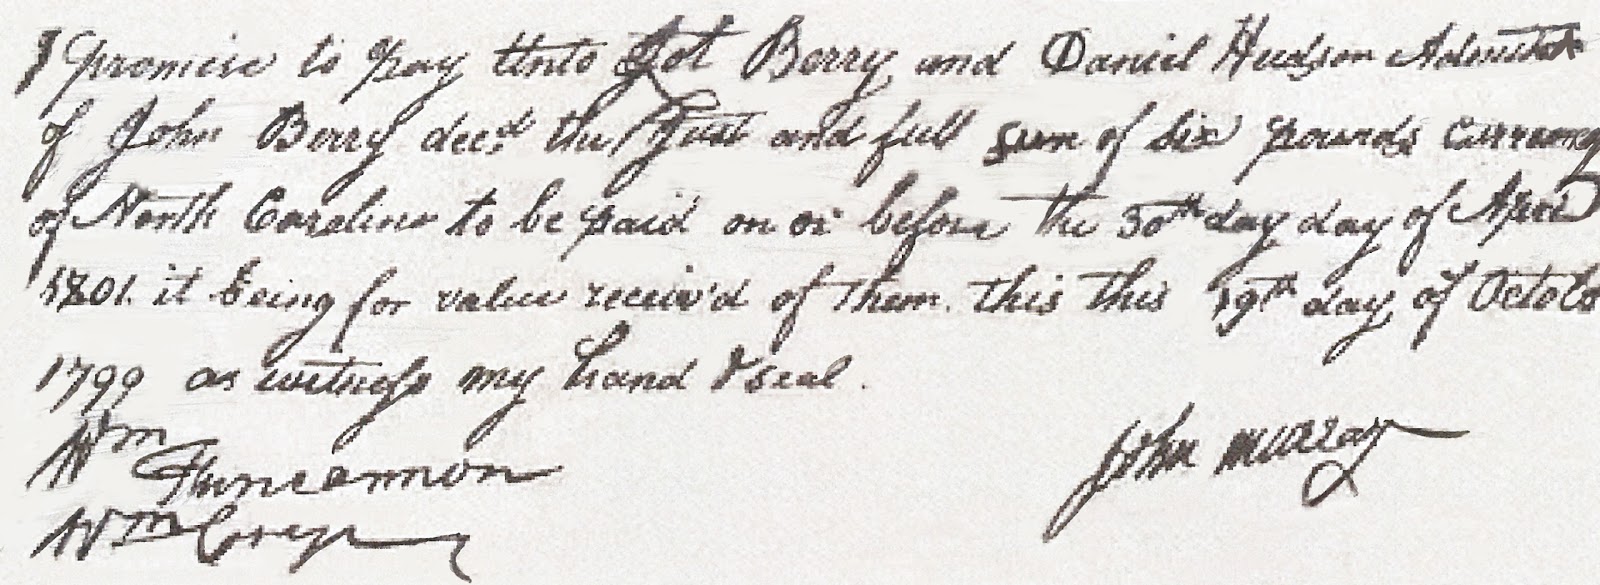 I promise to pay Unto Jot Berry and Daniel Hudson
of John Berry decd the Just and full sum of six pounds Currency
of North Carolina to be paid on or before the 30th day day of April
1801. it being for value receiv'd of them. this this 19th day of Octob
1799 as witness my hand & seal.
Wm
John Murray
Wm